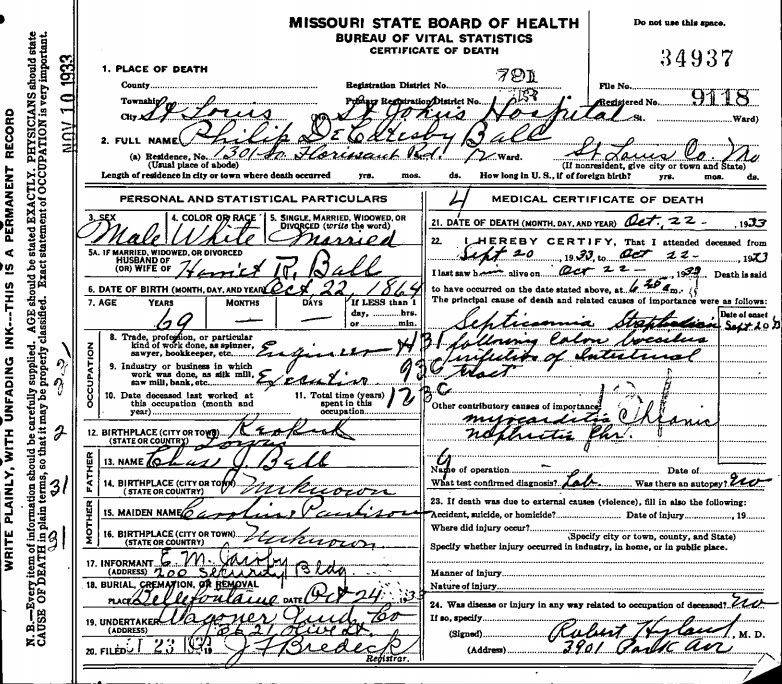 MISSOURI STATE BOARD OF HEALTH
BUREAU OF VITAL STATISTICS
CERTIFICATE OF DEATH
Do not use this space.
34937
NOV 10 1933
WRITE PLAINLY, WITH UNFADING INK---THIS IS A PERMANENT RECORD
N. B.—Every item of information should be carefully supplied. AGE should be stated EXACTLY. PHYSICIANS should state
CAUSE OF DEATH in plain terms, so that it may be properly classified. Exact statement of OCCUPATION is very important.
1. PLACE OF DEATH
County Registration District No. 791 File No.
Township Primary Registration District No. Registered No. 9118
City St Louis (No. St Johns Hospital St. Ward)
2. FULL NAME Philip De Catesby Ball
(a) Residence, No. 1301 So. Florissant Rd. Ward. St Louis Co. Mo
(Usual place of abode) (If nonresident, give city or town and State)
Length of residence in city or town where death occurred yrs. mos. ds. How long in U. S., if of foreign birth? yrs. mos. ds.
PERSONAL AND STATISTICAL PARTICULARS
3. SEX 4. COLOR OR RACE 5. SINGLE, MARRIED, WIDOWED, OR DIVORCED (write the word)
Male White Married
5A. IF MARRIED, WIDOWED, OR DIVORCED
HUSBAND OF
(OR) WIFE OF Harriet R. Ball
6. DATE OF BIRTH (MONTH, DAY, AND YEAR) Oct 22, 1864
7. AGE YEARS MONTHS DAYS If LESS than 1
day, hrs.
or min.
69 — —
OCCUPATION
8. Trade, profession, or particular
kind of work done, as spinner,
sawyer, bookkeeper, etc. Engineer
9. Industry or business in which
work was done, as silk mill,
saw mill, bank, etc. Executive
10. Date deceased last worked at
this occupation (month and
year)
11. Total time (years)
spent in this
occupation
12. BIRTHPLACE (CITY OR TOWN) Keokuk
(STATE OR COUNTRY) Iowa
FATHER
13. NAME Chas J. Ball
14. BIRTHPLACE (CITY OR TOWN)
(STATE OR COUNTRY) Unknown
MOTHER
15. MAIDEN NAME Caroline
16. BIRTHPLACE (CITY OR TOWN)
(STATE OR COUNTRY) Unknown
17. INFORMANT E. M.
(ADDRESS) 200 Security Bldg
18. BURIAL, CREMATION, OR REMOVAL
PLACE Bellefontaine DATE Oct 24 1933
19. UNDERTAKER Wagoner Und. Co
(ADDRESS) 3621 Olive St.
20. FILED OCT 23 1933 J F Bredeck
Registrar.
4
MEDICAL CERTIFICATE OF DEATH
21. DATE OF DEATH (MONTH, DAY, AND YEAR) Oct, 22 - , 1933
22. I HEREBY CERTIFY, That I attended deceased from
Sept 20, 1933, to Oct 22 - , 1933
I last saw him alive on Oct 22 - , 1933 Death is said
to have occurred on the date stated above, at 6 20 a m.
The principal cause of death and related causes of importance were as follows:
Date of onset
Septicaemia Sept 20
following Colon bacillus
infection of Intestinal
tract
Other contributory causes of importance:
myocarditis Chronic
nephritis Chr.
Name of operation - Date of
What test confirmed diagnosis? Lab. Was there an autopsy? no
23. If death was due to external causes (violence), fill in also the following:
Accident, suicide, or homicide? Date of injury , 19
Where did injury occur?
(Specify city or town, county, and State)
Specify whether injury occurred in industry, in home, or in public place.
Manner of injury
Nature of injury
24. Was disease or injury in any way related to occupation of deceased? no
If so, specify
(Signed) Robert Hyland, M. D.
(Address) 3901 Park Ave